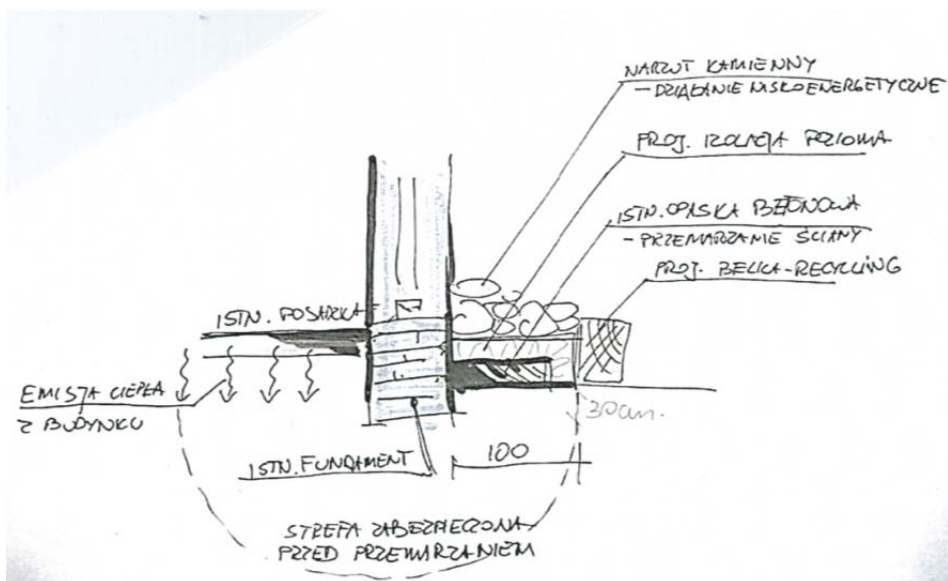 NARZUT KAMIENNY
- DZIAŁANIE NISKOENERGETYCZNE
PROJ. IZOLACJA POZIOMA
ISTN. OPASKA BETONOWA
- PRZEMARZANIE ŚCIANY
PROJ. BELKA-RECYCLING
ISTN. POSADZKA
EMISJA CIEPŁA
Z BUDYNKU
30cm.
100
ISTN. FUNDAMENT
STREFA ZABEZPIECZONA
PRZED PRZEMARZANIEM